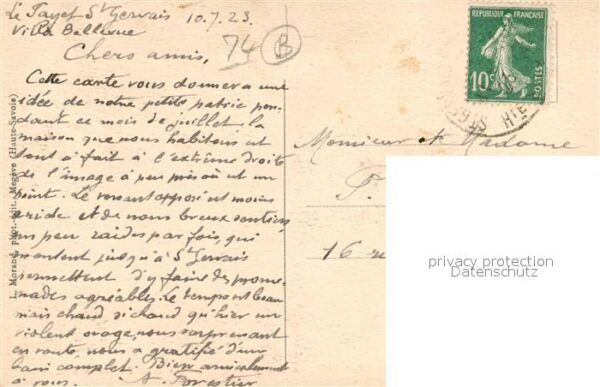 Le Fayet St Gervais 10.7.23
Villa Bellevue
74
B
Chers amis,
Cette carte vous donnera une
idée de notre petite patrie pen-
dant ce mois de juillet. la
maison que nous habitons est
tout à fait à l'extrême droite
de l'image à peu près où est un
point. Le versant opposé est moins
aride et de nombreux sentiers
un peu raides parfois, qui
montent jusqu'à St Gervais
permettent d'y faire des prome-
nades agréables. Le temps est beau
mais chaud, si chaud qu'hier un
violent orage, nous surprenant
en route, nous a gratifié d'un
bain complet. Bien amicalement
à vous. A. Forestier
L. Morand, phot.-édit., Megève (Haute-Savoie)
REPUBLIQUE FRANÇAISE
10c
POSTES
Monsieur et Madame
16
privacy protection
Datenschutz